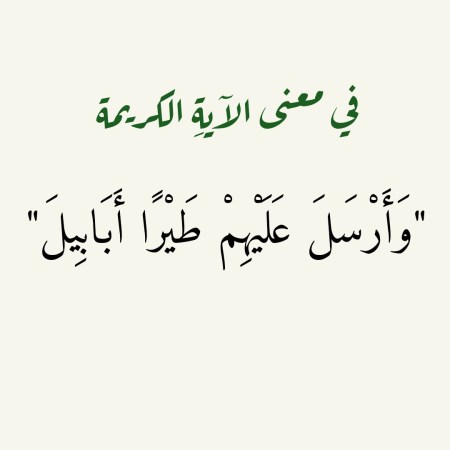 في معنى الآيةِ الكريمة
"وَأَرْسَلَ عَلَيْهِمْ طَيْرًا أَبَابِيلَ"